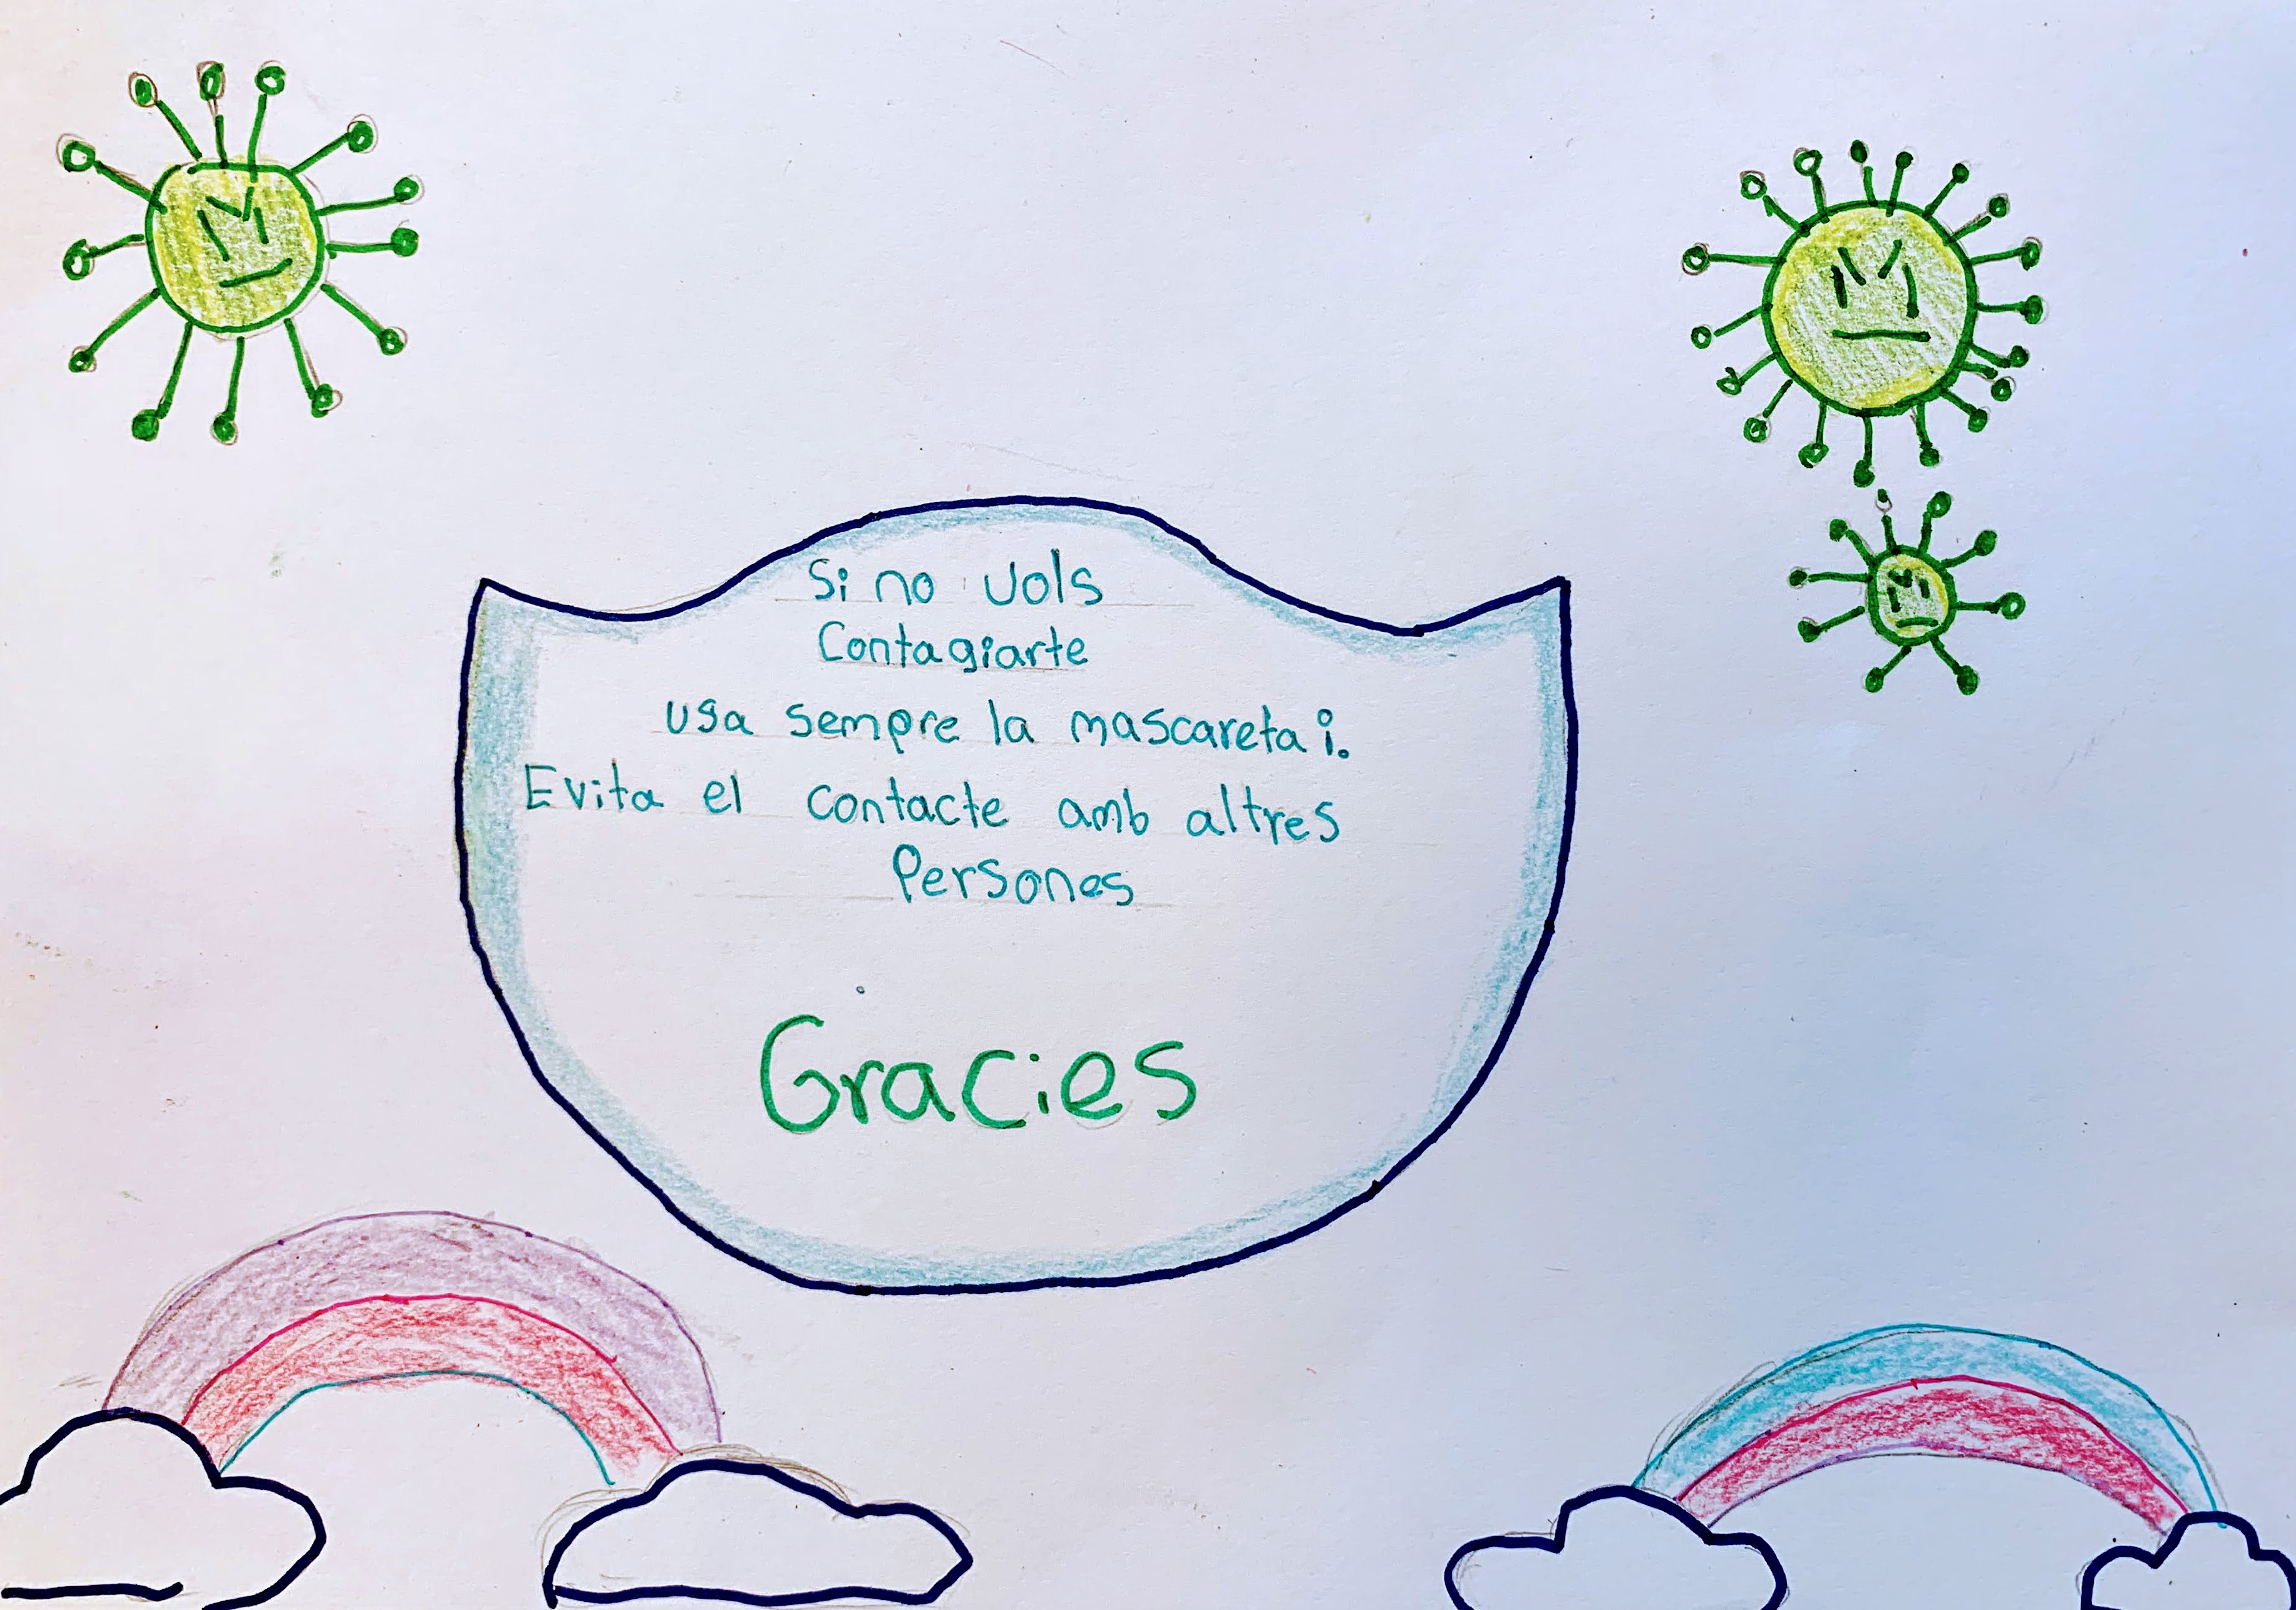 Si no vols
Contagiarte
usa sempre la mascareta i.
Evita el contacte amb altres
Persones
Gracies